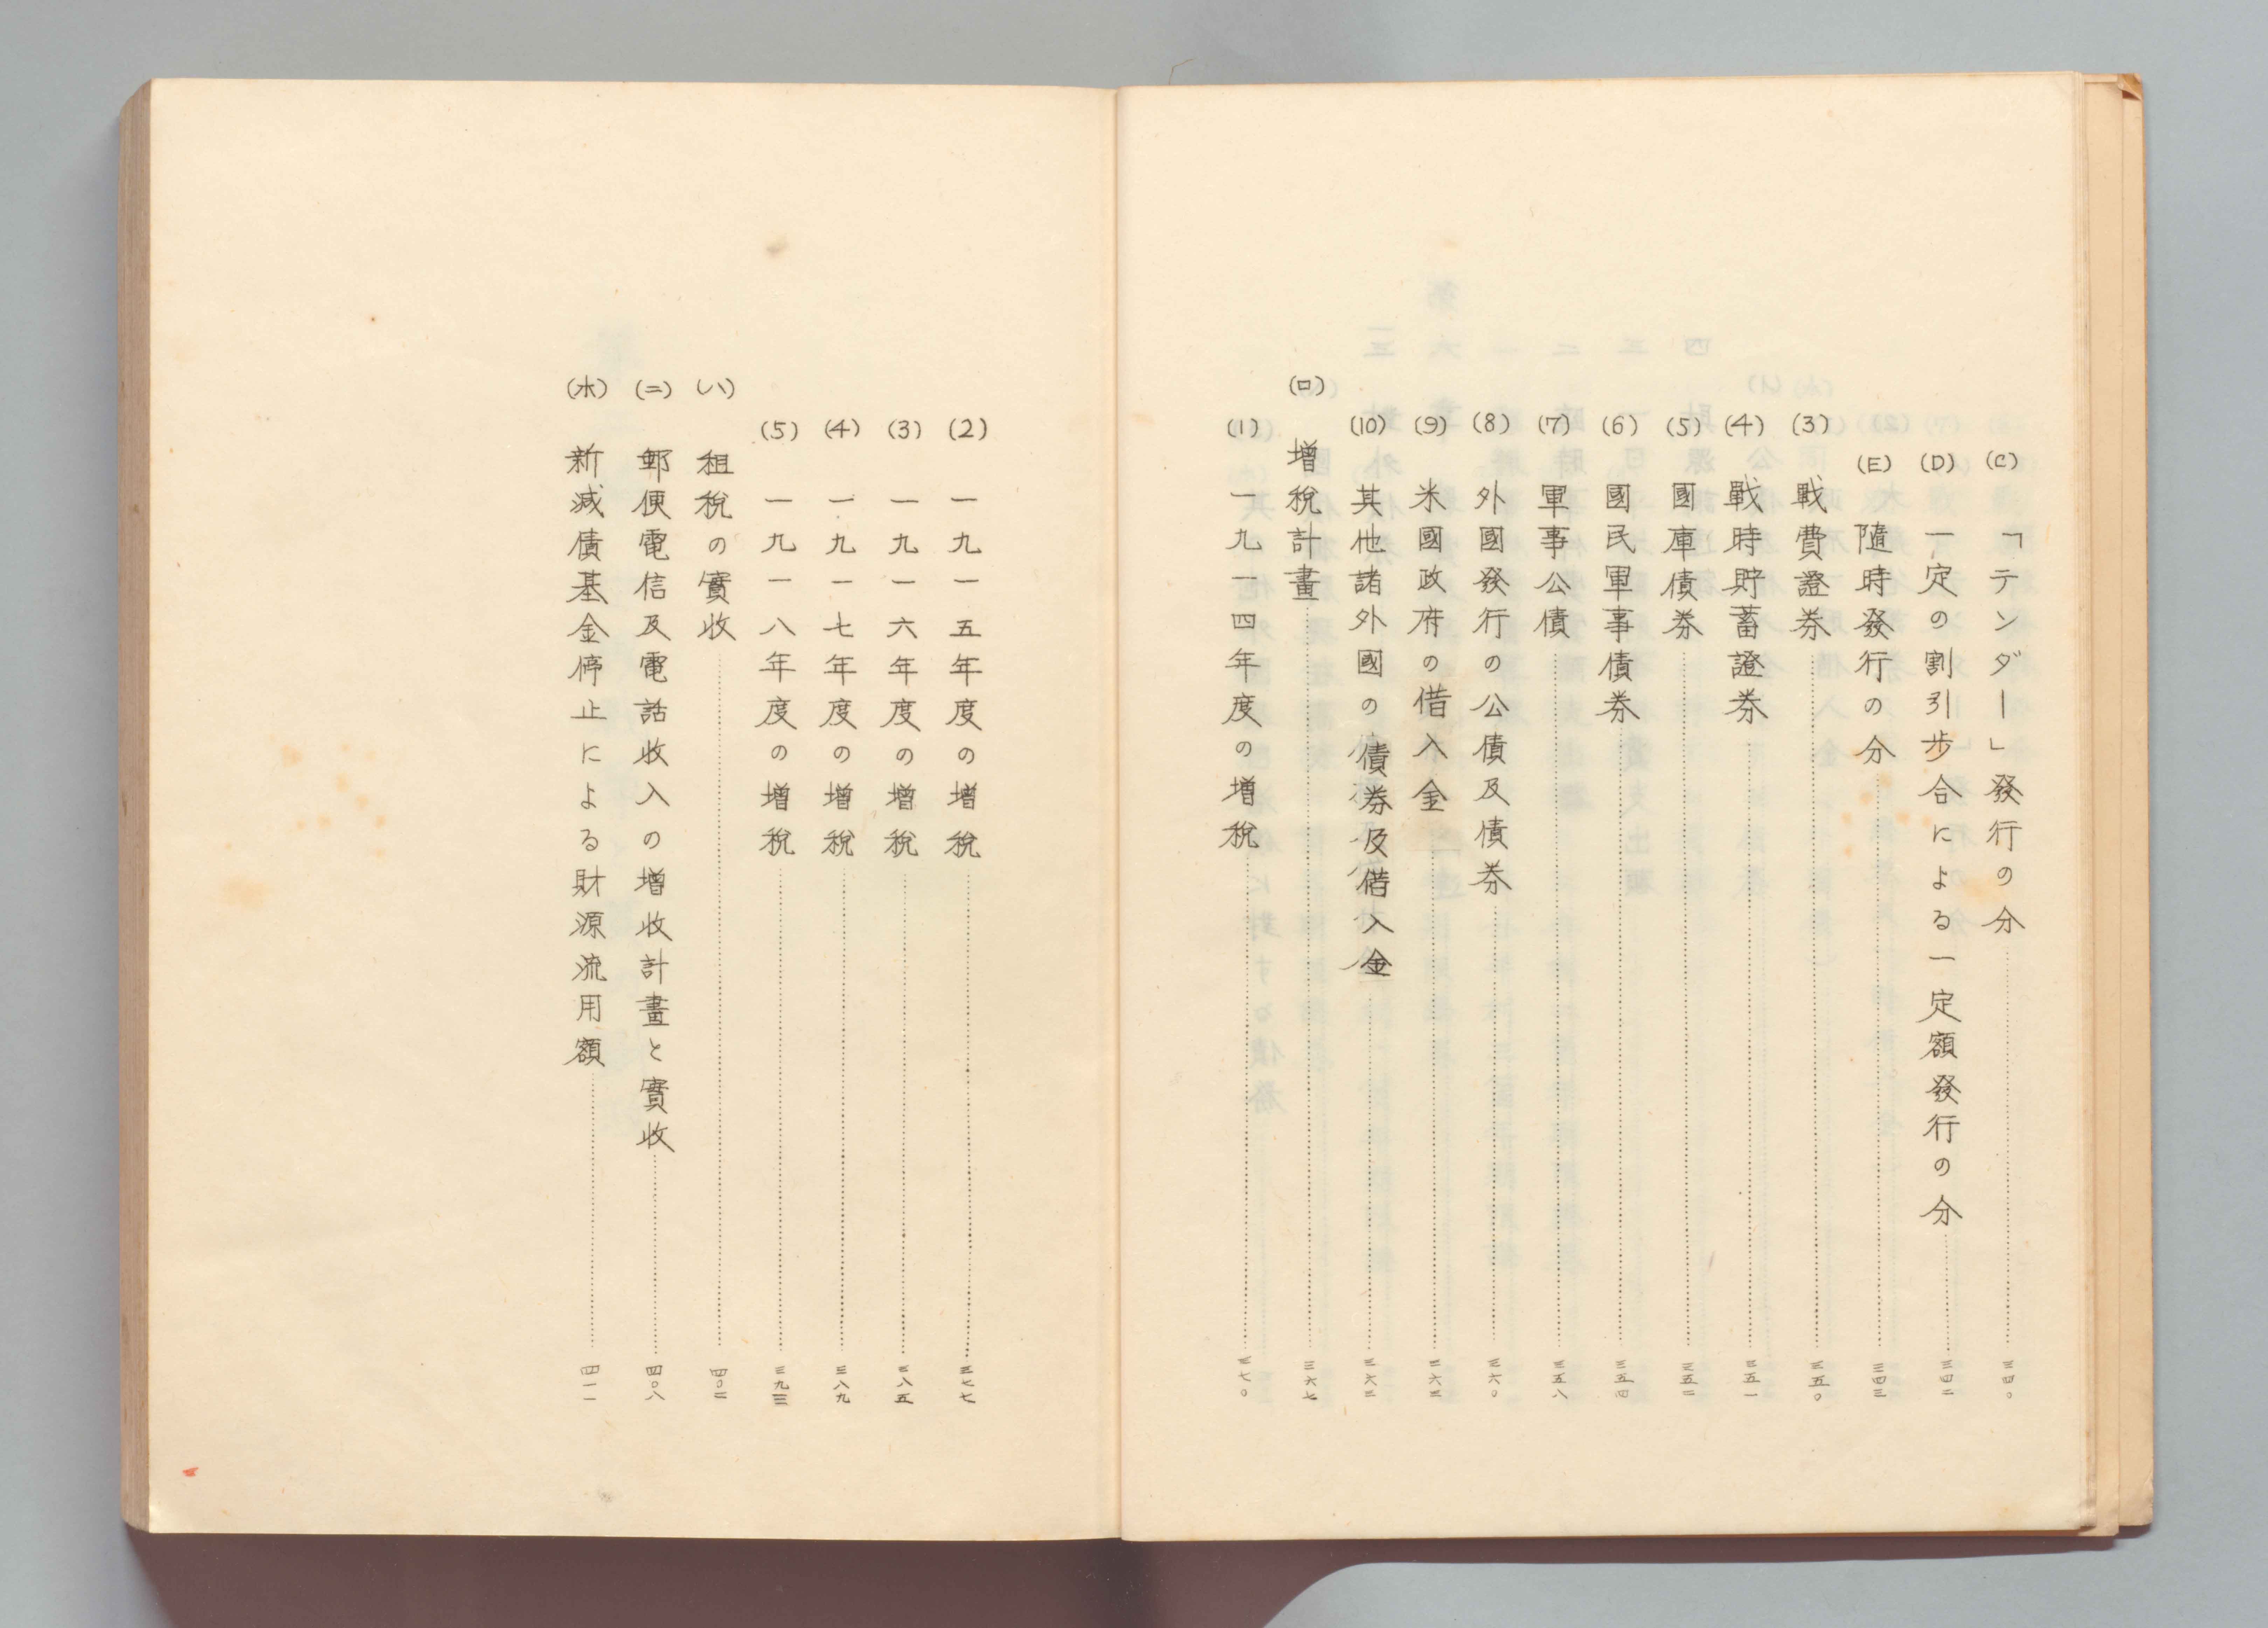 (C) 「テンダー」發行の分……三四〇
(D) 一定の割引步合による一定額發行の分……三四二
(E) 隨時發行の分……三四三
(3) 戰費證券……三五〇
(4) 戰時貯蓄證券……三五一
(5) 國庫債券……三五二
(6) 國民軍事債券……三五四
(7) 軍事公債……三五八
(8) 外國發行の公債及債券……三六〇
(9) 米國政府の借入金……三六三
(10) 其他諸外國の債券及借入金……三六三
(ロ) 增稅計畫……三六七
(1) 一九一四年度の增稅……三七〇
(2) 一九一五年度の增稅……三七七
(3) 一九一六年度の增稅……三八五
(4) 一九一七年度の增稅……三八九
(5) 一九一八年度の增稅……三九三
(ハ) 租稅の實收……四〇二
(ニ) 郵便電信及電話收入の增收計畫と實收……四〇八
(ホ) 新減債基金停止による財源流用額……四一一